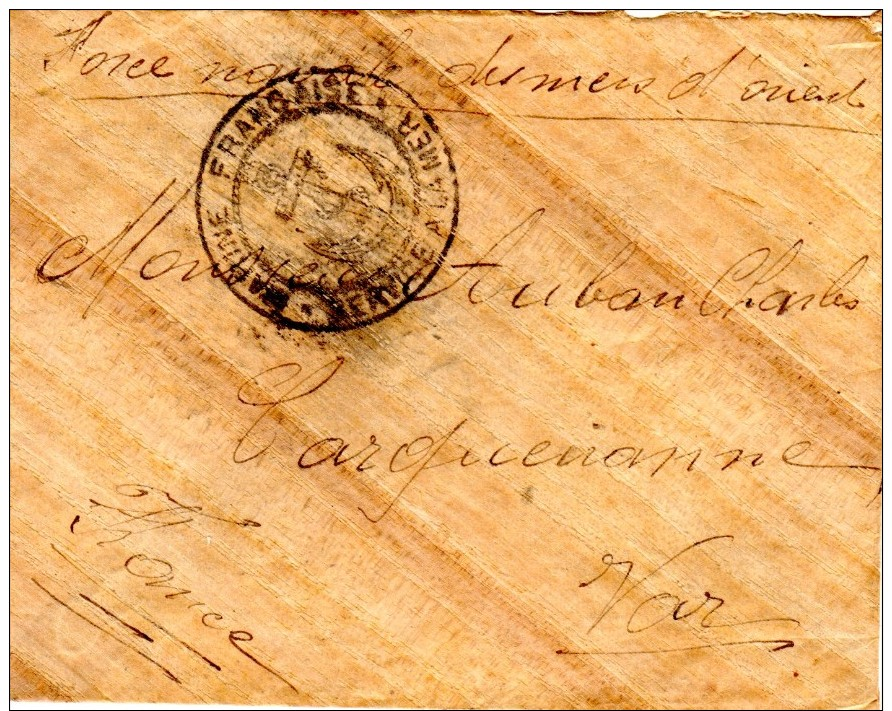 Force navale des mers d'orient
MARINE FRANÇAISE * SERVICE A LA MER *
Monsieur Charles
Carqueiranne
Var
France